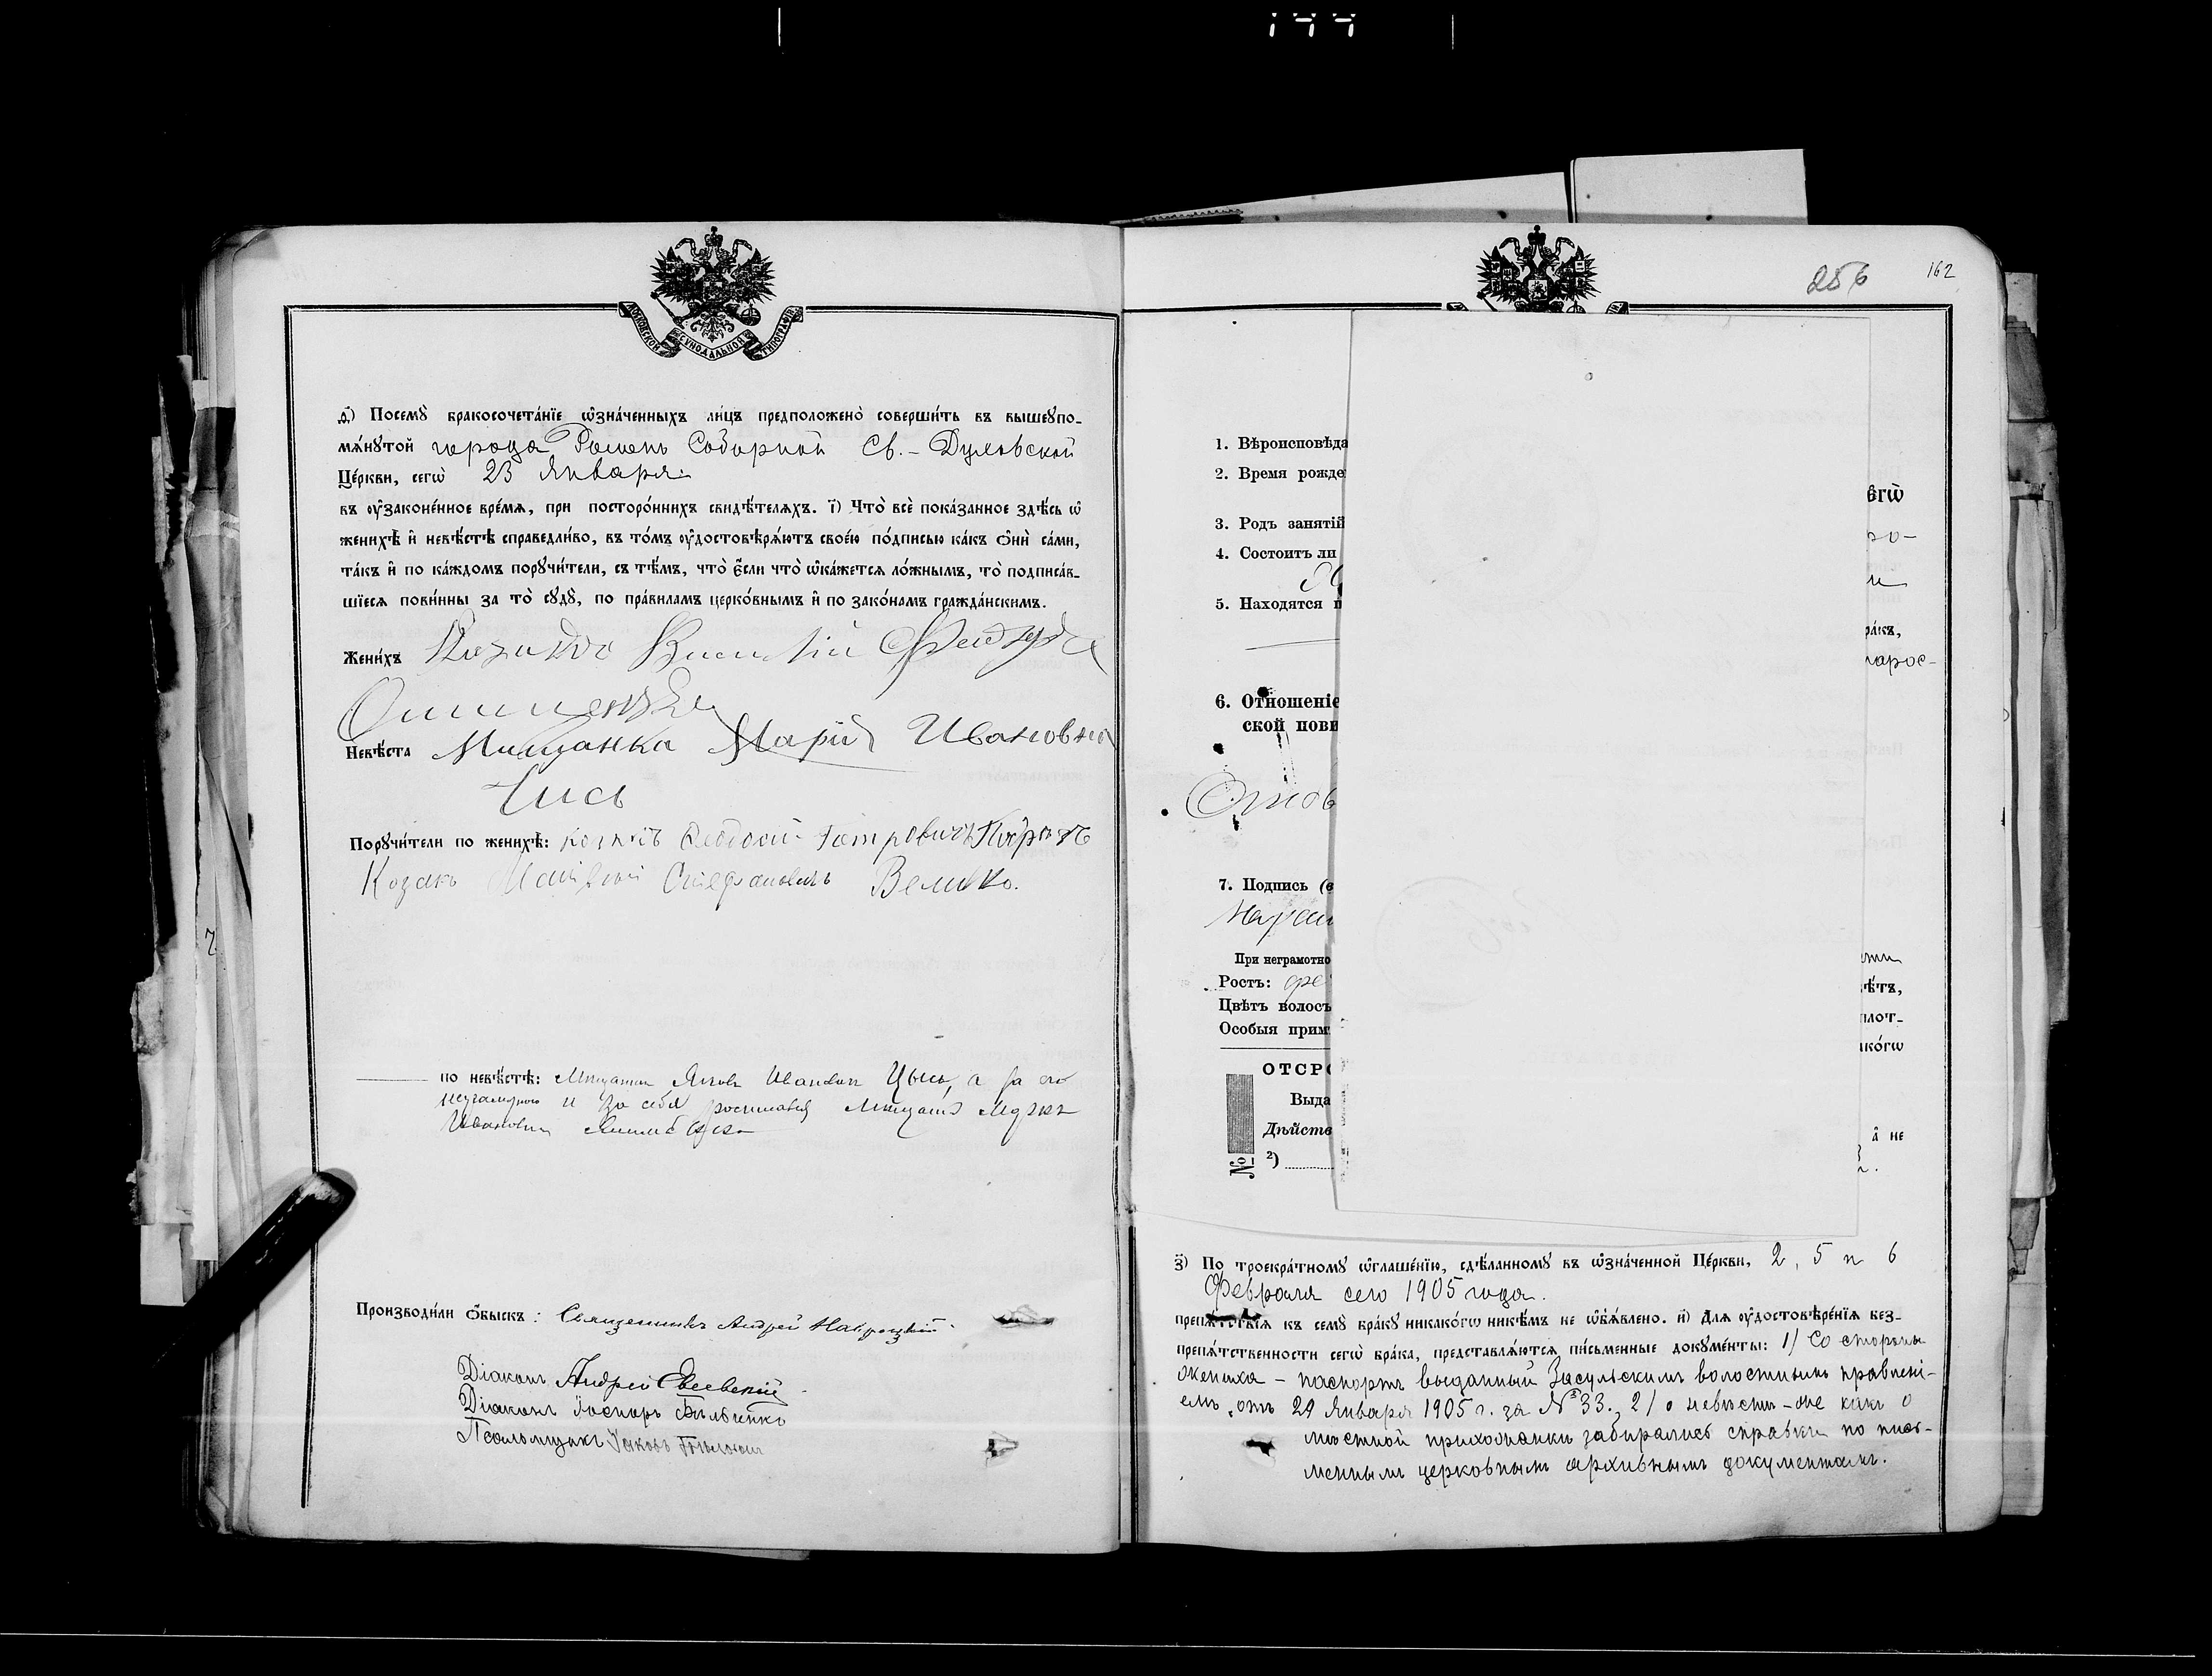 МОСКОВСКОЙ СѴНОДАЛЬНОЙ ТИПОГРАФІИ
д҃) Посемꙋ̀ бракосочета́нїе ѡ҆зна́ченныхъ ли́цъ предположено̀ соверши́ть въ вышеꙋпо-
мѧ́нꙋтой города Роменъ Соборной Св.-Духовской
Це́ркви, сегѡ̀ 23 Января
въ ᲂу҆законе́нное вре́мѧ, при посторо́ннихъ свидѣ́телѧхъ. і҃) Что̀ всѐ пока́занное здѣ́сь ѡ҆
женихѣ̀ и҆ невѣ́стѣ справедли́во, въ то́мъ ᲂу҆достовѣрѧ́ютъ свое́ю по́дписью ка́къ ѻ҆нѝ са́ми,
та́къ и҆ по ка́ждомъ порꙋчи́тели, съ тѣ́мъ, что̀ є҆́сли что̀ ѡ҆ка́жетсѧ ло́жнымъ, то̀ подписа́в-
шїесѧ пови́нны за то̀ сꙋдꙋ̀, по пра́виламъ церко́внымъ и҆ по зако́намъ гражда́нскимъ.
Жени́хъ Козакъ Василій
Невѣ́ста Мищанка Марія Ивановна
Порꙋчи́тели по женихѣ̀: козакъ Феодосій Петровичъ
Козакъ Стефановичъ Величко.
по невѣ́стѣ: Мещанин Яков Иванович Цысь, а за его
неграмотного и за себя росписался мещанин Марк
Иванович
Производи́ли ѻ҆́быскъ: Священникъ Андрей Навроцкій
Діаконъ Андрей Евсевскій
Діаконъ Іосифъ
Псаломщикъ Іаковъ
256 162
1. Вѣроисповѣда
2. Время рожде
3. Родъ занятій
4. Состоитъ ли
5. Находятся п
6. Отношеніе
ской пови
7. Подпись (в
При неграмотно
Ростъ: сре
Цвѣтъ волосъ
Особыя прим
ОТСРО
Выда
Дѣйств
№ 2)
егѡ̀
ро-
ра́къ,
ѣ́тъ,
плот-
ако́гѡ
а҆ не
з҃) По троекра́тномꙋ ѡ҆глаше́нїю, сдѣ́ланномꙋ въ ѡ҆зна́ченной Це́ркви, 2, 5 и 6
Февраля сего 1905 года.
препѧ́тствїѧ къ семꙋ̀ бра́кꙋ никако́гѡ никѣ́мъ не ѡ҆б̾ѧ́влено. и҃) Длѧ ᲂу҆достовѣре́нїѧ без-
препѧ́тственности сегѡ̀ бра́ка, представлѧ́ютсѧ пи́сьменные докꙋме́нты: 1) Со стороны
жениха – паспортъ выданный Засульскимъ волостнымъ правлені-
емъ отъ 29 Января 1905 г. за № 33. 2) о невѣсти-же какъ о
мѣстной прихожанки забирались справки по пись-
меннымъ церковнымъ архивнымъ документамъ.